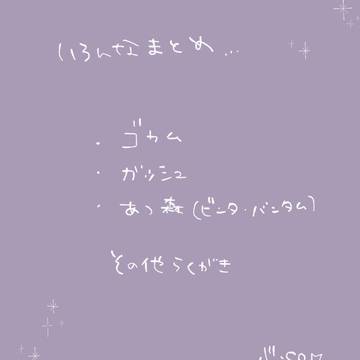 いろんなまとめ...
・ゴカム
・ガッシュ
・あつ森(ビンタ・バンタム)
その他らくがき